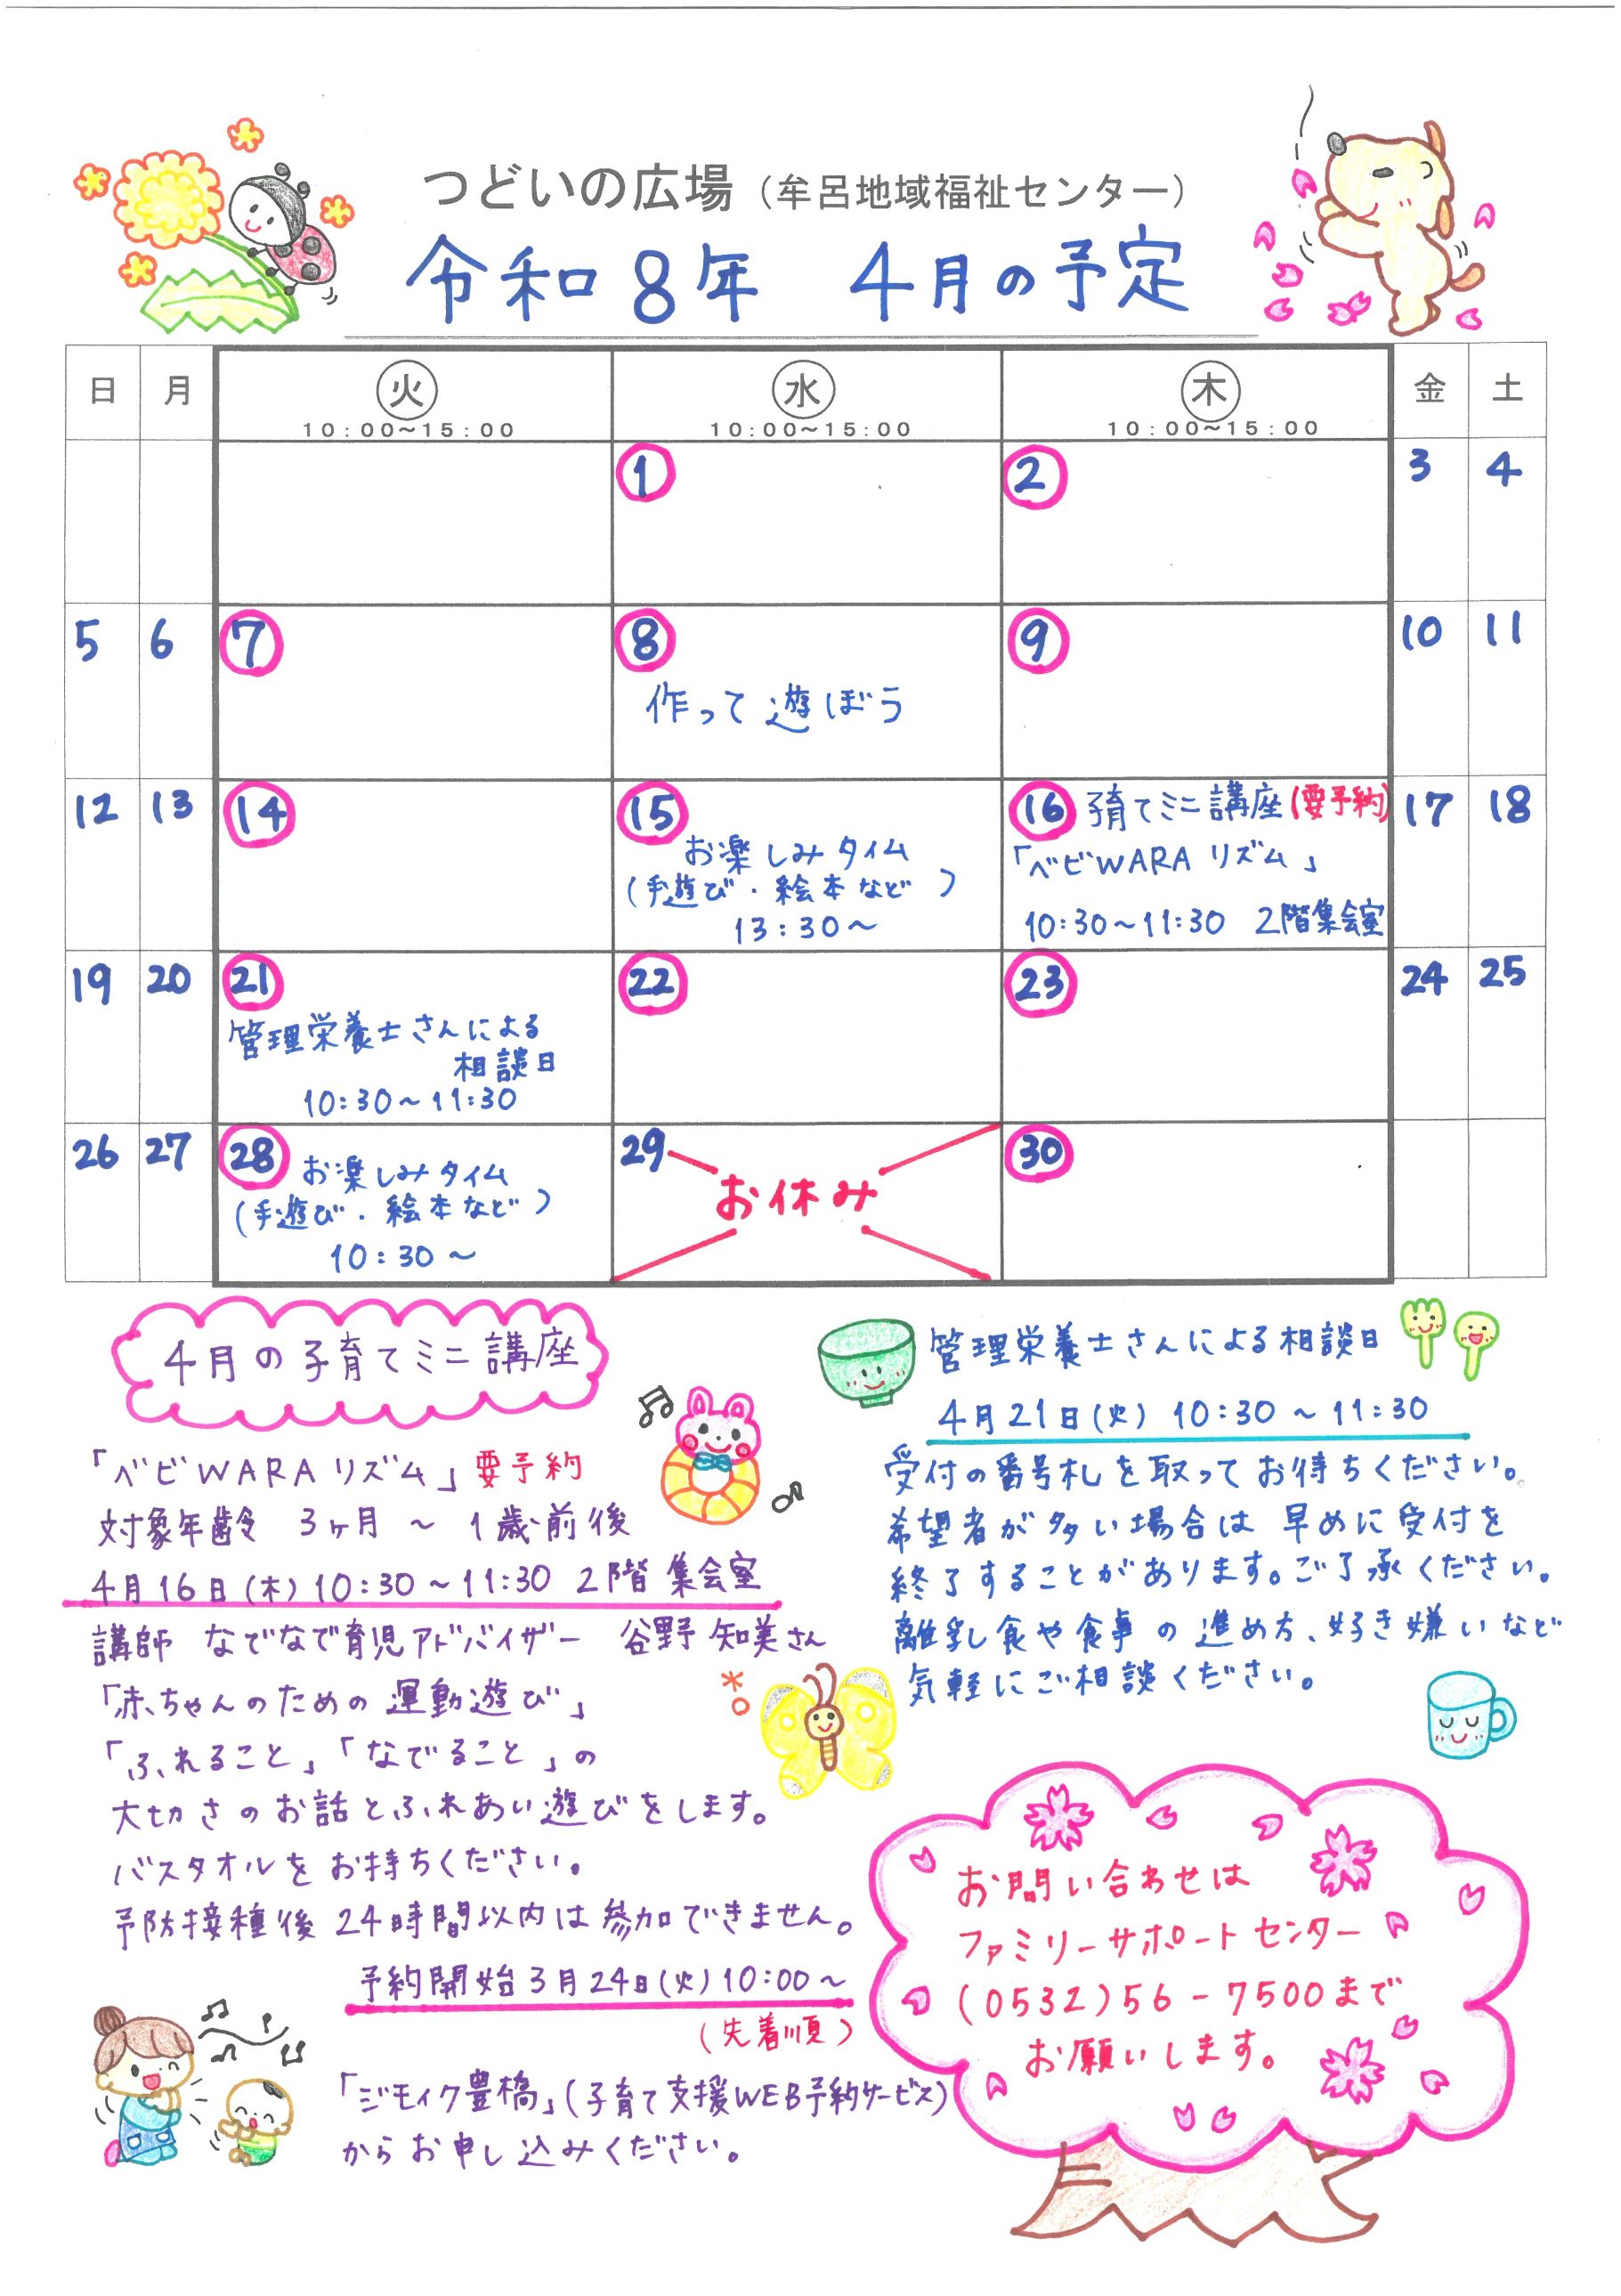 つどいの広場（牟呂地域福祉センター）
令和8年　4月の予定
日 月 火 水 木 金 土
10:00～15:00 10:00～15:00 10:00～15:00
1 2 3 4
5 6 7 8 9 10 11
作って遊ぼう
12 13 14 15 16 子育てミニ講座(要予約) 17 18
お楽しみタイム
(手遊び・絵本など)
13:30～
「ベビWARAリズム」
10:30～11:30 2階集会室
19 20 21 22 23 24 25
管理栄養士さんによる
相談日
10:30～11:30
26 27 28 29 30
お楽しみタイム
(手遊び・絵本など)
10:30～
お休み
4月の子育てミニ講座
「ベビWARAリズム」要予約
対象年齢 3ヶ月～1歳前後
4月16日(木)10:30～11:30 2階集会室
講師 なでなで育児アドバイザー 谷野知美さん
「赤ちゃんのための運動遊び」
「ふれること」「なでること」の
大切さのお話とふれあい遊びをします。
バスタオルをお持ちください。
予防接種後24時間以内は参加できません。
予約開始3月24日(火)10:00～
(先着順)
「ジモイク豊橋」(子育て支援WEB予約サービス)
からお申し込みください。
管理栄養士さんによる相談日
4月21日(火) 10:30～11:30
受付の番号札を取ってお待ちください。
希望者が多い場合は早めに受付を
終了することがあります。ご了承ください。
離乳食や食事の進め方、好き嫌いなど
気軽にご相談ください。
お問い合わせは
ファミリーサポートセンター
(0532)56-7500まで
お願いします。